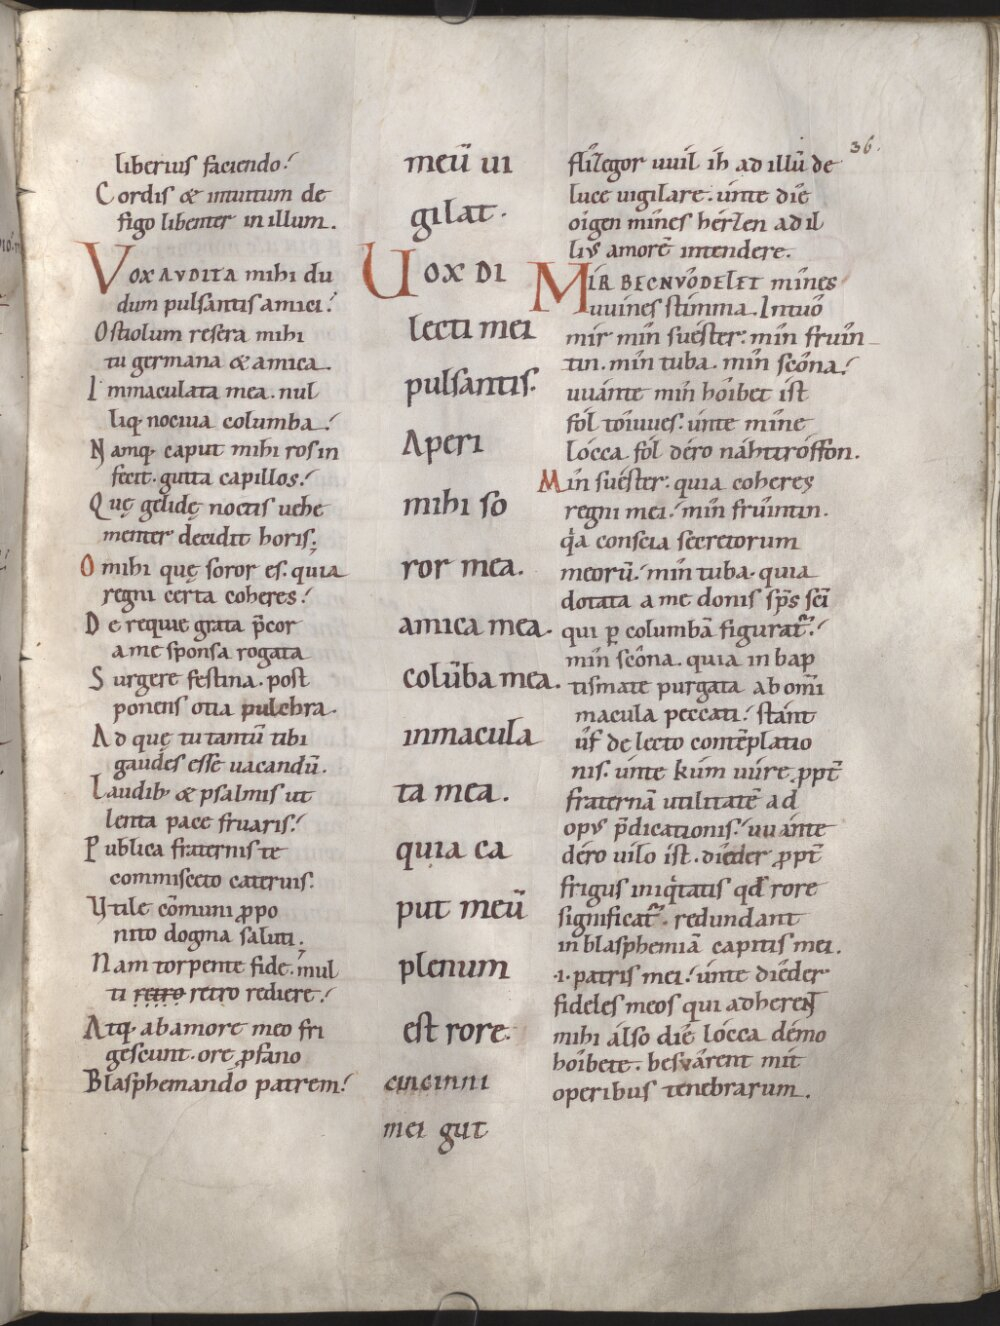 36.
liberius faciendo.
Cordis & intuitum de
figo libenter in illum.
Vox AVDITA mihi du
dum pulsantis amici.
Ostiolum resera mihi
tu germana & amica.
Immaculata mea. nul
liq; nociua columba.
Namq; caput mihi ros in
fecit. gutta capillos.
Quę gelidę noctis uehe
menter decidit horis;
O mihi quę soror es. quia
regni certa coheres.
De requie grata p̄cor
a me sponsa rogata
Surgere festina. post
ponens otia pulchra.
Ad quę tu tantū tibi
gaudes esse uacandū.
Laudib; & psalmis ut
lenta pace fruaris.
Publica fraternis te
commisceto cateruis.
Vtile cōmuni ꝓpo
nito dogma saluti.
Nam torpente fide. mul
ti retro retro rediere.
Atq; ab amore meo fri
gescunt. ore ꝓfano
Blasphemando patrem.
meū ui
gilat.
Uox DI
lecti mei
pulsantis.
Aperi
mihi so
ror mea.
amica mea.
colūba mea.
inmacula
ta mea.
quia ca
put meū
plenum
est rore.
cincinni
mei gut
flîzegor uuil ih ad illū de
luce uigilare. únte díe
óigen mînes hérzen ad il
lius amorē intendere.
MIR BECNVÔDELET mînes
uuínes stîmma. Intuô
mír mîn suéster. mîn friúin
tin. mîn tuba. mîn scôna.
uuánte mîn hôibet íst
fól tôiuues. únte mîne
lócca fól déro náhttróffon.
Mîn suéster. quia coheres
regni mei. mîn friúintin.
q̇a conscia secretorum
meorū. mîn tuba. quia
dotata a me donis sp̄s sc̄i
qui ꝑ columbā figurat᷑.
mîn scôna. quia in bap
tismate purgata ab om̄i
macula peccati. stánt
ûf de lecto contēplatio
nis. únte kúm uúre ꝓpt̄
fraternā utilitatē ad
opus p̄dicationis. uuánte
déro uílo íst. díeder ꝓpt̄
frigus iniq̇tatis qđ rore
significat᷑. redundant
in blasphemiā capitis mei.
.i. patris mei. únte díeder
fideles meos qui adherent
mihi álso díe lócca démo
hôibete. besuârent mít
operibus tenebrarum.